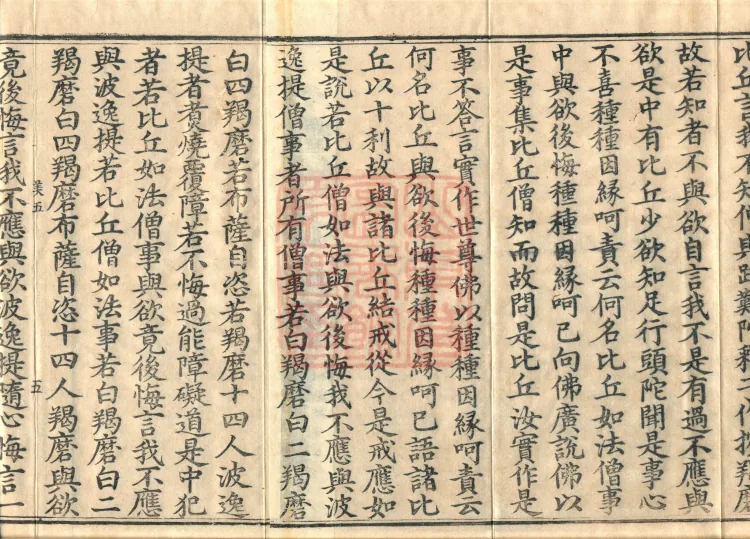 比丘言我不知但與跋難陀釋
故若知者不與欲自言我不是有過不應與
欲是中有比丘少欲知足行頭陀聞是事心
不喜種種因緣呵責云何名比丘如法僧事
中與欲後悔種種因緣呵已向佛廣說佛以
是事集比丘僧知而故問是比丘汝實作是
事不答言實作世尊佛以種種因緣呵責云
何名比丘與欲後悔種種因緣呵已語諸比
丘以十利故與諸比丘結戒從今是戒應如
是說若比丘僧如法與欲後悔我不應與波
逸提僧事者所有僧事若白羯磨白二羯磨
白四羯磨若布薩自恣若羯磨十四人波逸
提者煑燒覆障若不悔過能障礙道是中犯
者若比丘如法僧事與欲竟後悔言我不應
與波逸提若比丘僧如法事若白羯磨白二
羯磨白四羯磨布薩自恣十四人羯磨與欲
業五 五
竟後悔言我不應與欲波逸提隨心悔言一